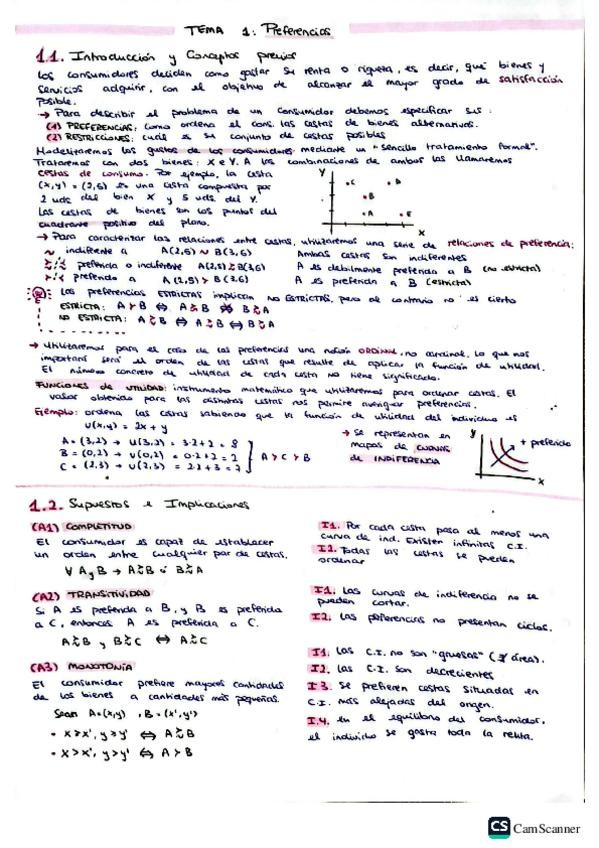 TEMA 1: Preferencias
1.1. Introducción y Conceptos previos
Los consumidores deciden como gastar su renta o riqueza, es decir, qué bienes y
servicios adquirir, con el objetivo de alcanzar el mayor grado de satisfacción
posible.
→ Para describir el problema de un consumidor debemos especificar sus:
(1) PREFERENCIAS: como ordena el cons. las cestas de bienes alternativas.
(2) RESTRICCIONES: cuál es su conjunto de cestas posibles
Modelizaremos los gustos de los consumidores mediante un "sencillo tratamiento formal".
Trataremos con dos bienes: X e Y. A las combinaciones de ambos las llamaremos
cestas de consumo. Por ejemplo, la cesta
(x,y) = (2,5) es una cesta compuesta por
2 uds. del bien X y 5 uds. del Y.
Las cestas de bienes son los puntos del
cuadrante positivo del plano.
Y
C
D
B
A
E
X
→ Para caracterizar las relaciones entre cestas, utilizaremos una serie de relaciones de preferencia:
~ indiferente a A(2,5) ~ B(3,6) Ambas cestas son indiferentes
≿ preferida o indiferente A(2,5) ≿ B(3,6) A es debilmente preferida a B (no estricta)
≻ preferida a A(2,5) ≻ B(3,6) A es preferida a B (estricta)
Las preferencias ESTRICTAS implican NO ESTRICTAS, pero al contrario no es cierto
ESTRICTA: A ≻ B ⇔ A ≿ B B ⋡ A
NO ESTRICTA: A ≿ B ⇔ A ≿ B ⇔ B ≿ A
→ Utilizaremos para el caso de las preferencias una noción ORDINAL, no cardinal. Lo que nos
importará será el orden de las cestas que resulte de aplicar la función de utilidad.
El número concreto de utilidad de cada cesta no tiene significado.
FUNCIONES de UTILIDAD: instrumento matemático que utilizaremos para ordenar cestas. El
valor obtenido para las distintas cestas nos permite averiguar preferencias.
Ejemplo: ordena las cestas sabiendo que la función de utilidad del individuo es
U(x,y) = 2x + y
A = (3,2) → U(3,2) = 3·2+2 = 8
B = (0,2) → U(0,2) = 0·2+2 = 2
C = (2,3) → U(2,3) = 2·2+3 = 7
A > C > B
→ Se representan en
mapas de CURVAS
de INDIFERENCIA
Y
+ preferido
X
1.2. Supuestos e Implicaciones
(A1) COMPLETITUD
El consumidor es capaz de establecer
un orden entre cualquier par de cestas.
∀ A y B → A ≿ B ó B ≿ A
I1. Por cada cesta pasa al menos una
curva de ind. Existen infinitas C.I.
I2. Todas las cestas se pueden
ordenar
(A2) TRANSITIVIDAD
Si A es preferida a B, y B es preferida
a C, entonces A es preferida a C.
A ≿ B y B ≿ C ⇔ A ≿ C
I1. Las curvas de indiferencia no se
pueden cortar.
I2. Las preferencias no presentan ciclos.
(A3) MONOTONÍA
El consumidor prefiere mayores cantidades
de los bienes a cantidades más pequeñas.
Sean A=(x,y) , B=(x',y')
• x≥x', y≥y' ⇔ A ≿ B
• x>x', y>y' ⇔ A ≻ B
I1. Las C.I. no son "gruesas" (∄ área).
I2. Las C.I. son decrecientes
I3. Se prefieren cestas situadas en
C.I. más alejadas del origen.
I.4. En el equilibrio del consumidor,
el individuo se gasta toda la renta.
CS CamScanner